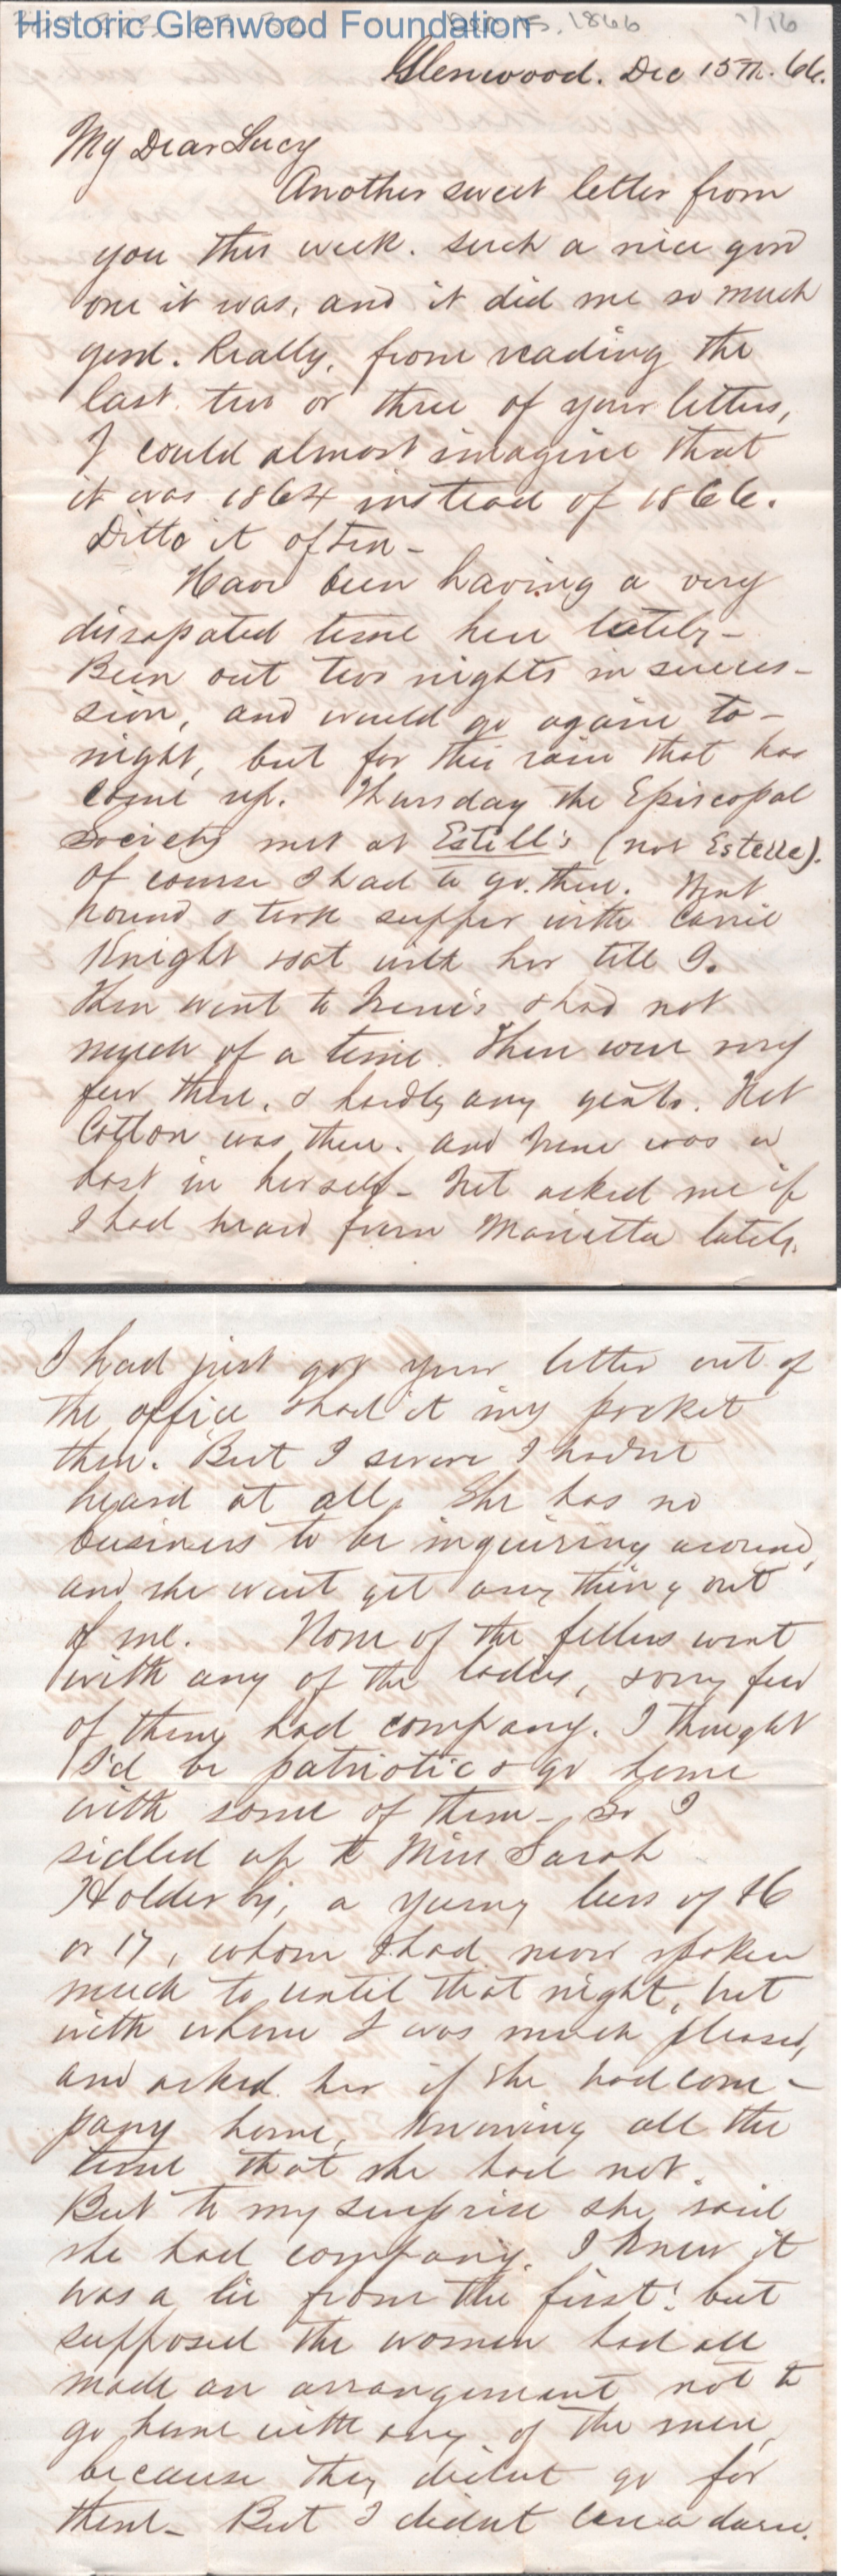 Historic Glenwood Foundation
1866
1/16
Glenwood. Dec 15th. 66.
My Dear Lucy
Another sweet letter from
you this week. Such a nice good
one it was, and it did me so much
good. Really, from reading the
last two or three of your letters,
I could almost imagine that
it was 1864 instead of 1866.
Ditto it often-
Have been having a very
dissapated time here lately-
Been out two nights in succes-
sion, and would go again to-
night, but for this rain that has
come up. Thursday the Episcopal
Society met at Estill's (not Estelle).
Of course I had to go there. Went
round & took supper with Carrie
Knight & sat with her till 9.
Then went to Irene's & had not
much of a time. There were very
few there, & hardly any gents. Net
Cotton was there. and Irene was a
host in herself- Net asked me if
I had heard from Marietta lately.
I had just got your letter out of
the office & had it in my pocket
then. But I swore I hadnt
heard at all. She has no
business to be inquiring around,
and she wont get any thing out
of me. None of the fellers went
with any of the ladies, & very few
of them had company. I thought
I'd be patriotic & go home
with some of them- So I
sidled up to Miss Sarah
Holderby, a young lass of 16
or 17, whom I had never spoken
much to until that night, but
with whom I was much pleased,
and asked her if she had com-
pany home, knowing all the
time that she had not.
But to my surprise she said
she had company. I knew it
was a lie from the first! but
supposed the women had all
made an arrangement not to
go home with any of the men,
because they didnt go for
them- But I didnt care a darn.